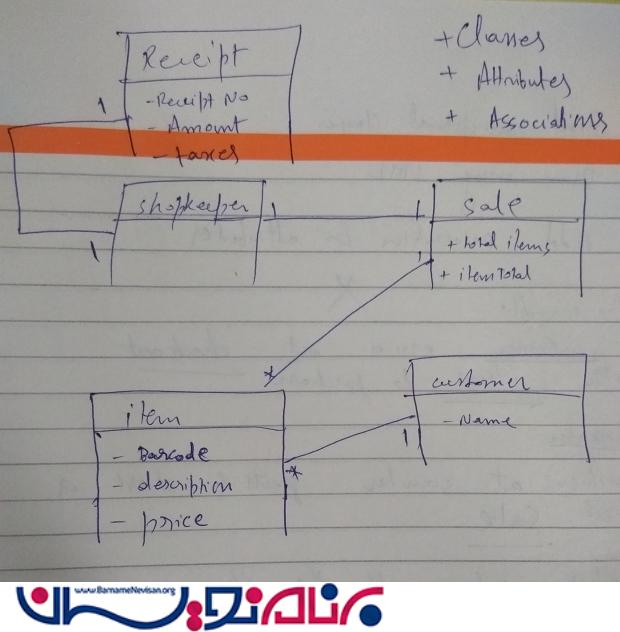 Receipt
- Receipt No
- Amount
- taxes
+ Classes
+ Attributes
+ Associations
1
1
shopkeeper
1
1
sale
+ total items
+ item Total
1
*
item
- Barcode
- description
- price
*
1
customer
- Name
www.BarnameNevisan.org
برنامه نویسان